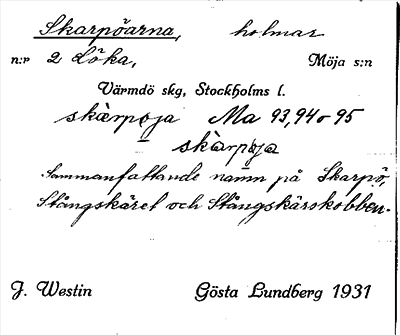 Skarpöarna, holmar
n:r 2 Löka, Möja s:n
Värmdö skg, Stockholms l.
skàrpo̱ja Ma 93,94 o 95
skàrpo̱ja
Sammanfattande namn på Skarpö,
Stångskäret och Stångskärskobben.
J. Westin Gösta Lundberg 1931